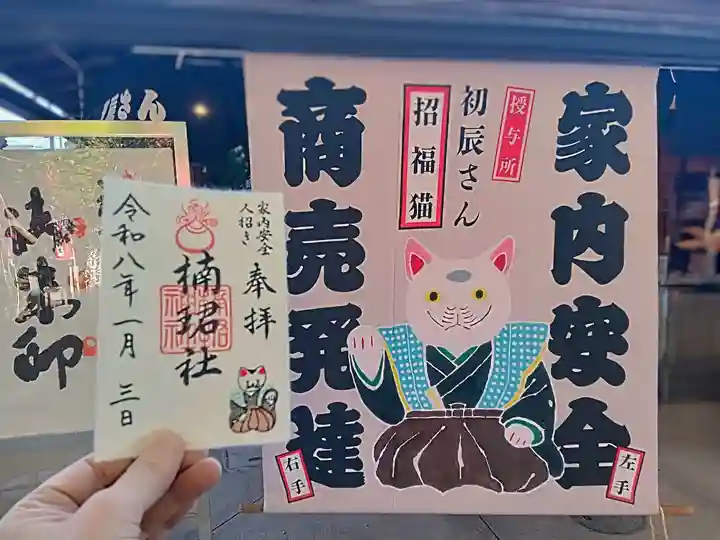 家内安全
授与所
初辰さん
招福猫
商売発達
左手
右手
家内安全
人招き
奉拝
楠珺社
令和八年一月三日
さん
御朱印